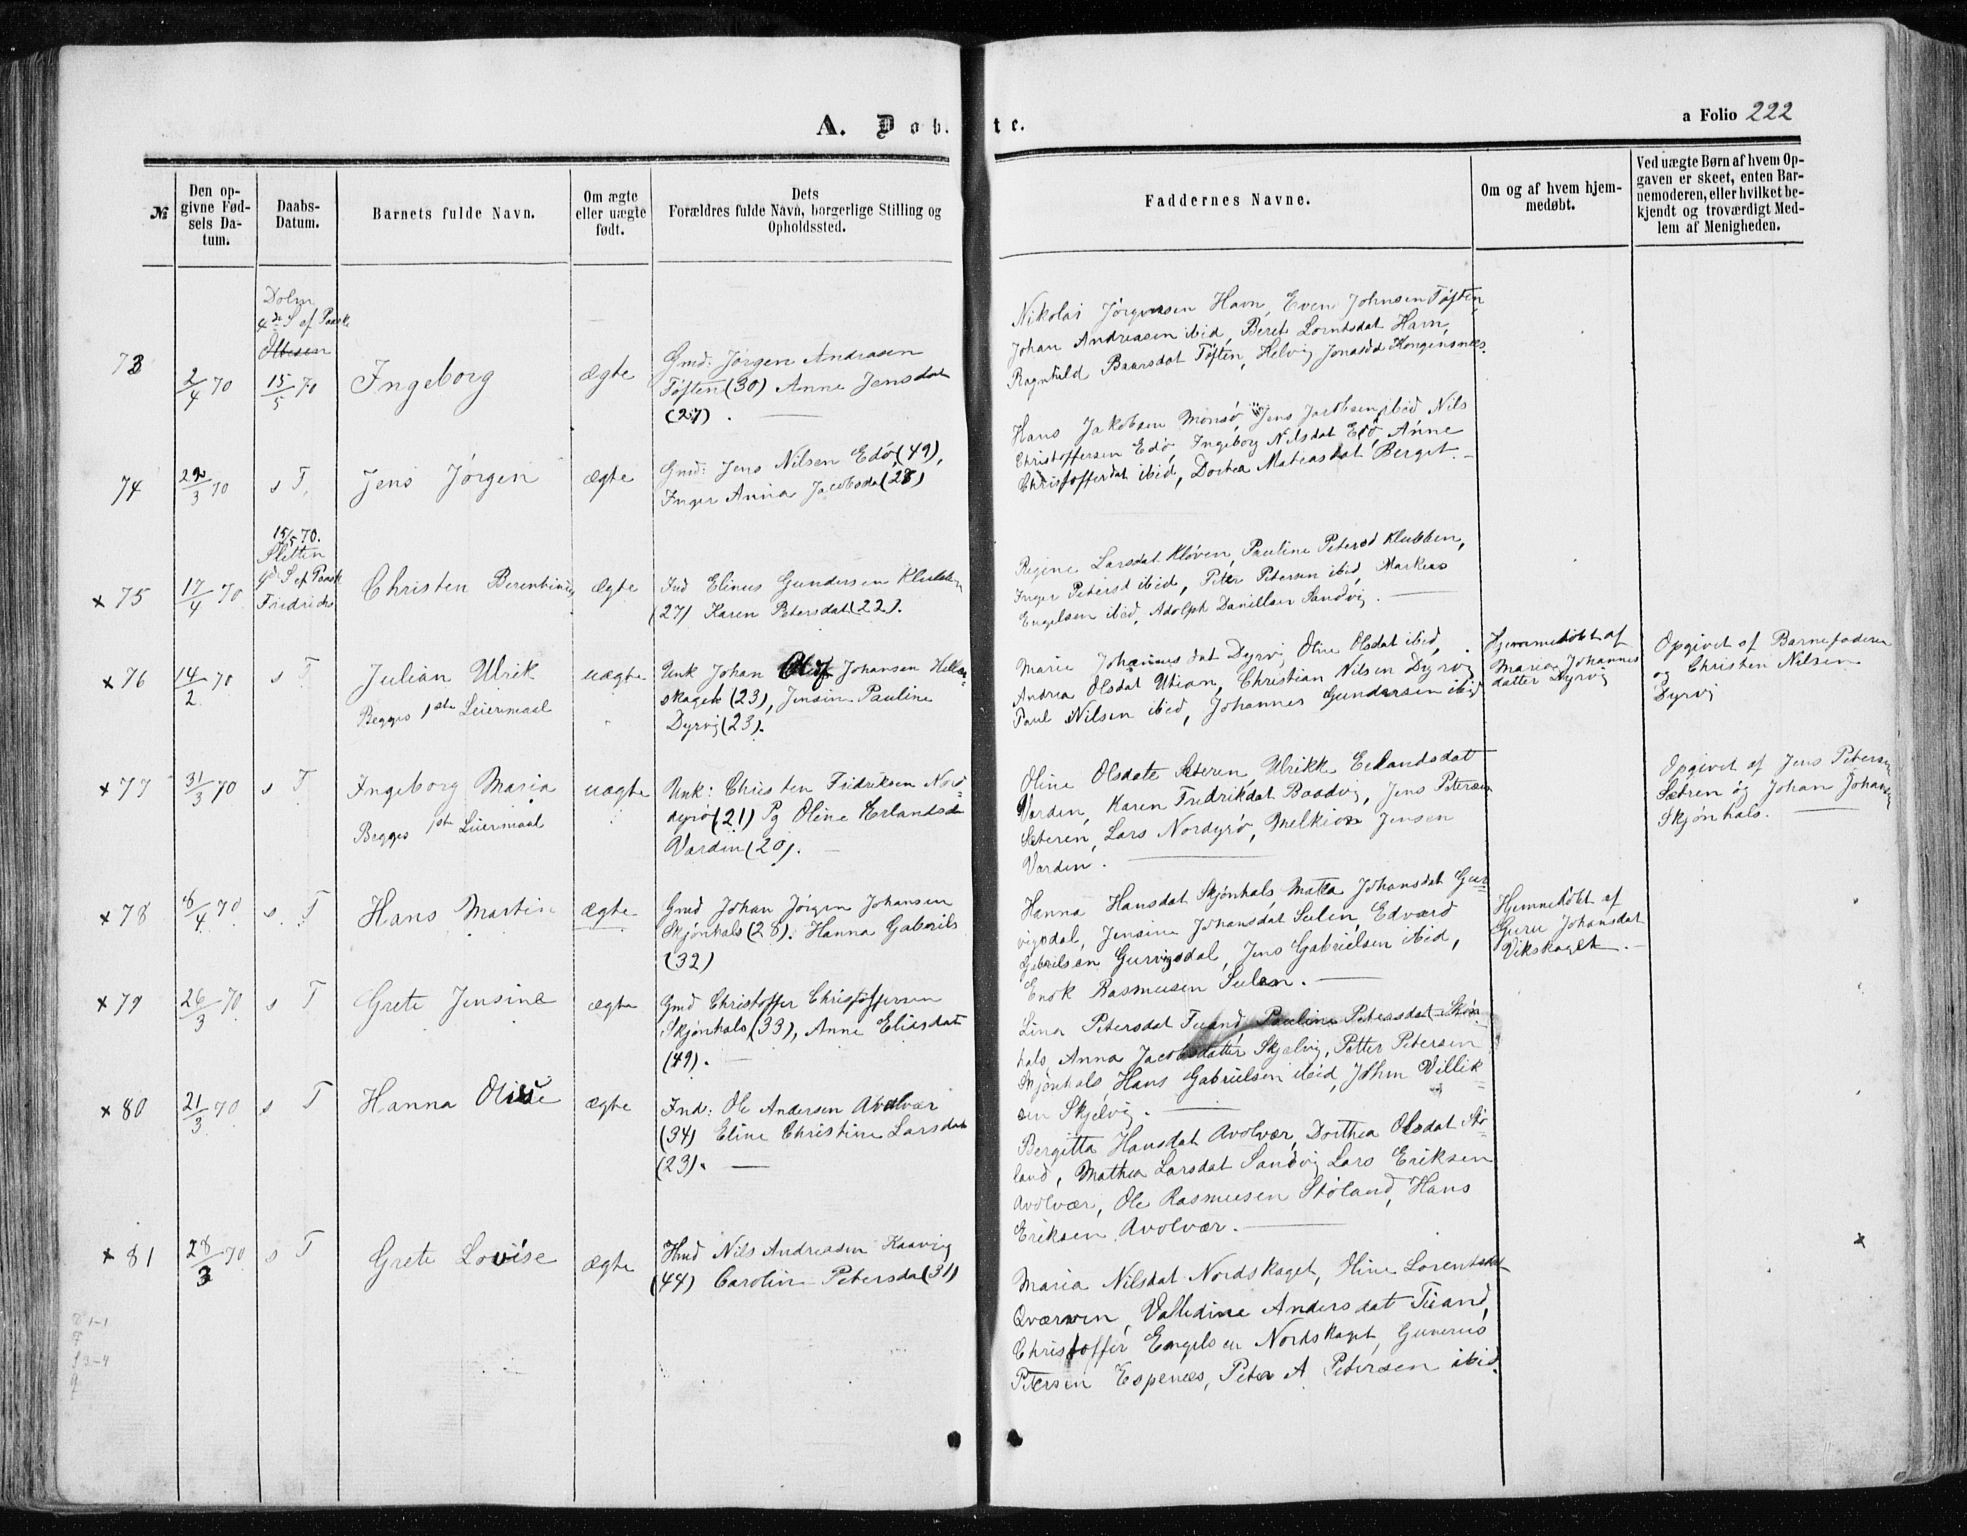 A. Døb-te.
a Folio 222
№
Den op-
givne Fød-
sels Da-
tum.
Daabs-
Datum.
Barnets fulde Navn.
Om ægte
eller uægte
født.
Dets
Forældres fulde Navn, borgerlige Stilling og
Opholdssted.
Faddernes Navne.
Om og af hvem hjem-
medøbt.
Ved uægte Børn af hvem Op-
gaven er skeet, enten Bar-
nemoderen, eller hvilket be-
kjendt og troværdigt Med-
lem af Menigheden.
Dolm
4de S ef Paaske
73
2/4 70
15/5 70
Ingeborg
ægte
Gmd: Jørgen Andreasen
Tøften (30) Anne Jensdat
(27).
Nikolai Jørgensen Havn, Even Johnsen Tøften,
Johan Andreasen ibid, Beret Lorntsdat Havn,
Ragnhild Baarsdat Tøften, Helvig Jonasdd Kongensnes.
74
22/3 70
s T.
Jens Jørgen
ægte
Gmd: Jens Nilsen Edø (49),
Inger Anna Jacobsda (28)
Hans Jakobsen Monsø, Jens Jacobsen ibid Nils
Christoffersen Edø, Ingeborg Nilsdat Edø, Anne
Christofferdat ibid, Dortea Mateasdat Berget.
15/5 70.
Sletten
4d S ef Paask
Fredrichs
x 75
17/4 70
Christen Berentinus
ægte
Ind Elinus Gundersen Klubben
(27) Karen Petersdat (22).
Regine Larsdat Kløven, Pauline Petersd Klubben,
Inger Petersd ibid, Peter Petersen ibid, Markus
Engelsen ibid, Adolph Daniellsen Sandvig.
x 76
14/2 70
s T
Julian Ulrik
Begges 1ste Leiermaal
uægte
Unk Johan Olof Johansen Hella-
skaget (23), Jensine Pauline
Dyrvig (23).
Marie Johannesdat Dyrvig, Oline Olsdat ibid,
Andrea Olsdat Utian, Christian Nilsen Dyrvig
Paul Nilsen ibid, Johannes Gundersen ibid
Hjemmedøbt af
Maria Johannes
datter Dyrvig
Opgivet af Barnefaderen
og Christen Nilsen
Dyrvig
x 77
31/3 70
s T
Ingeborg Maria
Begges 1ste Leiermaal
uægte
Unk: Christen Fredriksen Nord
dyrø (21) Pg Oline Erlandsda
Varden (20).
Oline Olsdate Sæteren, Ulrikke Erlandsdat
Varden, Karen Fredrikdat Baadvig, Jens Petersen
Sæteren, Lars Nordyrø, Melkior Jensen
Varden.
Opgivet af Jens Petersen
Sætren og Johan Johansen
Skjønhals.
x 78
8/4 70
s. T
Hans Martin
ægte
Gmd Johan Jørgen Johansen
Skjønhals (28). Hanna Gabriels
(32)
Hanna Hansdat Skjønhals, Matea Johansdat Gur-
vigsdal, Jensine Johansdat Sulen, Edvard
Gabrielsen Gurvigsdal, Jens Gabrielsen ibid,
Enok Rasmusen Sulen.
Hjemmedøbt af
Guru Johansdat
Vikskaget.
x 79
26/3 70
s T
Grete Jensine
ægte
Gmd Christoffer Christoffersen
Skjønhals (33), Anne Eliasdat
(49).
Lina Petersdat Tuand, Pauline Petersdat Skøn-
hals Anna Jacobsdatter Skjelvig, Petter Petersen
Skjønhals, Hans Gabrielsen ibid, John Villik-
sen Skjelvig.
x 80
21/3 70
s T
Hanna Oline
ægte
Ind: Ole Andersen Avolvær
(34) Eline Christine Larsdat
(23).
Bergitta Hansdat Avolvær, Dorthea Olsdat Stø-
land, Mathea Larsdat Sandvig Lars Eriksen
Avolvær, Ole Rasmusen Støland, Hans
Eriksen Avolvær.
x 81
28/3 70
s T
Grete Lovise
ægte
Hmd Nils Andreasen Kaavig
(44) Carolin Petersda (31)
Maria Nilsdat Nordskaget, Eline Lorentsdat
Qværnen, Valledine Andersdat Tuand,
Christoffer Engelsen Nordskaget, Gunerius
Petersen Espenæs, Peter A Petersen ibid.